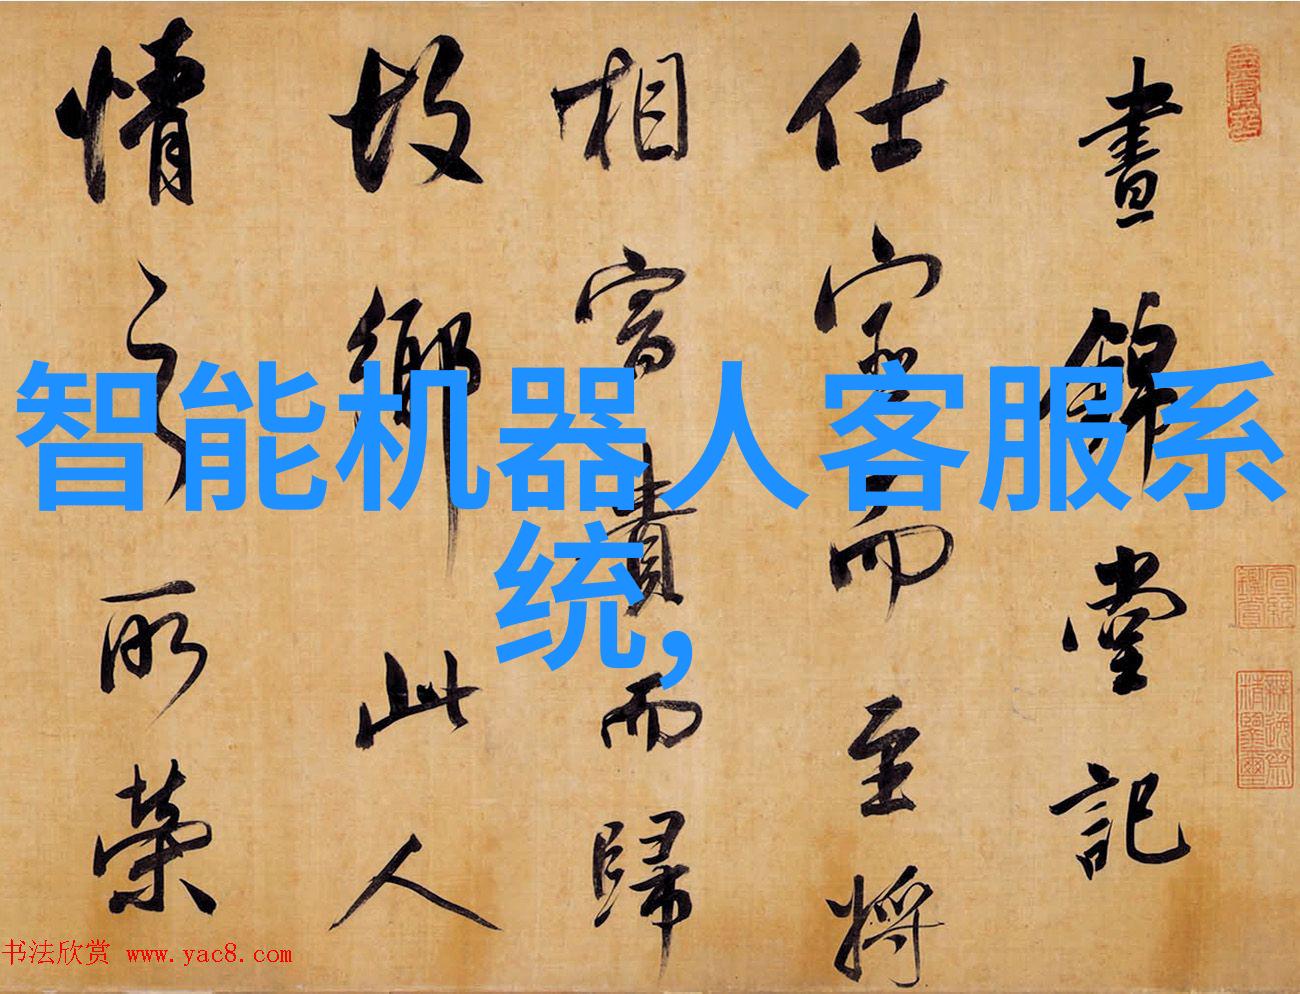 晝錦堂記
仕宦而至將
相富貴而歸
故鄉此人
情之所榮
智能机器人客服系
统,
书法欣赏 www.yac8.com